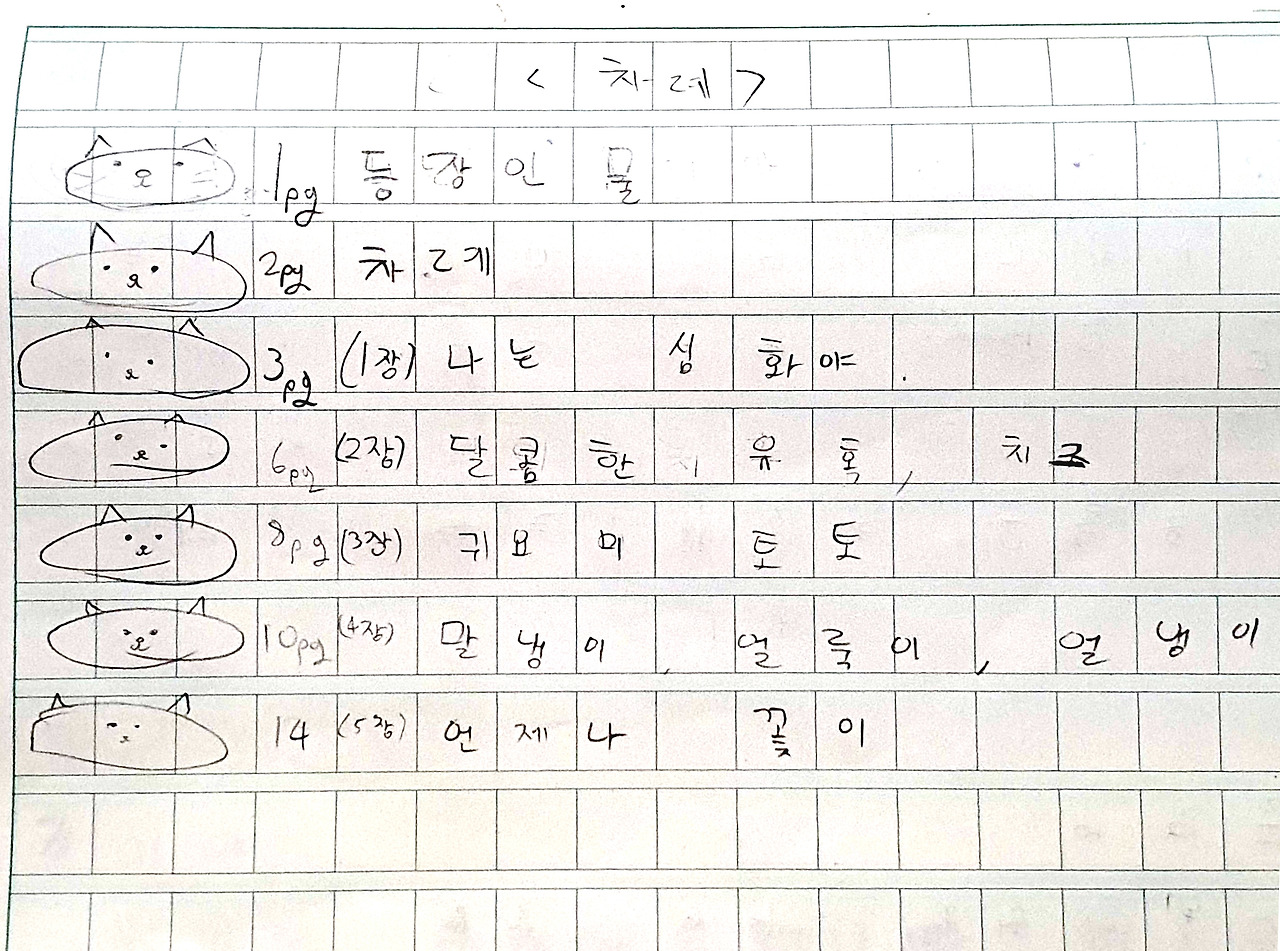 < 차례 >
1pg 등장인물
2pg 차례
3pg (1장) 나는 심화야.
6pg (2장) 달콤한 유혹, 치즈
8pg (3장) 귀요미 토토
10pg (4장) 말냉이, 얼룩이, 얼냉이
14 (5장) 언제나 꽃이